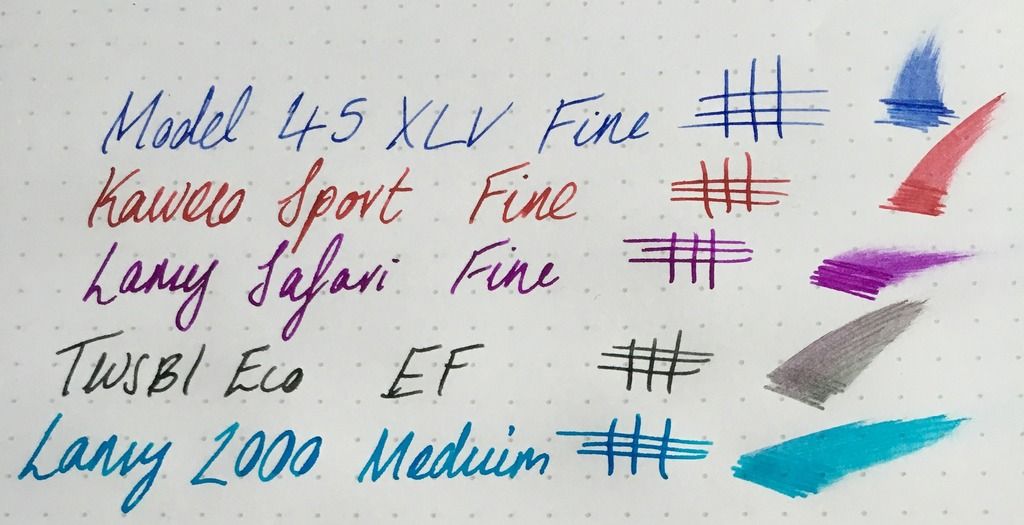 Model 45 XLV Fine
Kaweco Sport Fine
Lamy Safari Fine
TWSBI Eco EF
Lamy 2000 Meduim